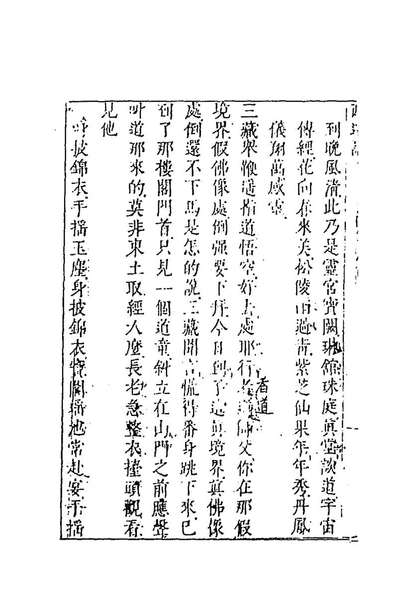 到晚風清此乃是靈宮寳闕琳館珠庭真堂談道宇宙
傳經花向春來美松陵雨過青紫芝仙果年年秀丹鳳
儀翔萬感靈
三藏舉鞭遙指道悟空好去處耶行者道師父你在那假
境界假佛像處倒強要下拜今日到了這真境界真佛像
處倒還不下馬是怎的說三藏聞言慌得番身跳下來已
到了那樓閣門首只見一個道童斜立在山門之前應聲
叫道那來的莫非東土取經人麼長老急整衣擡頭觀看
見他
身披錦衣手搖玉麈身披錦衣寳閣瑤池常赴宴手搖